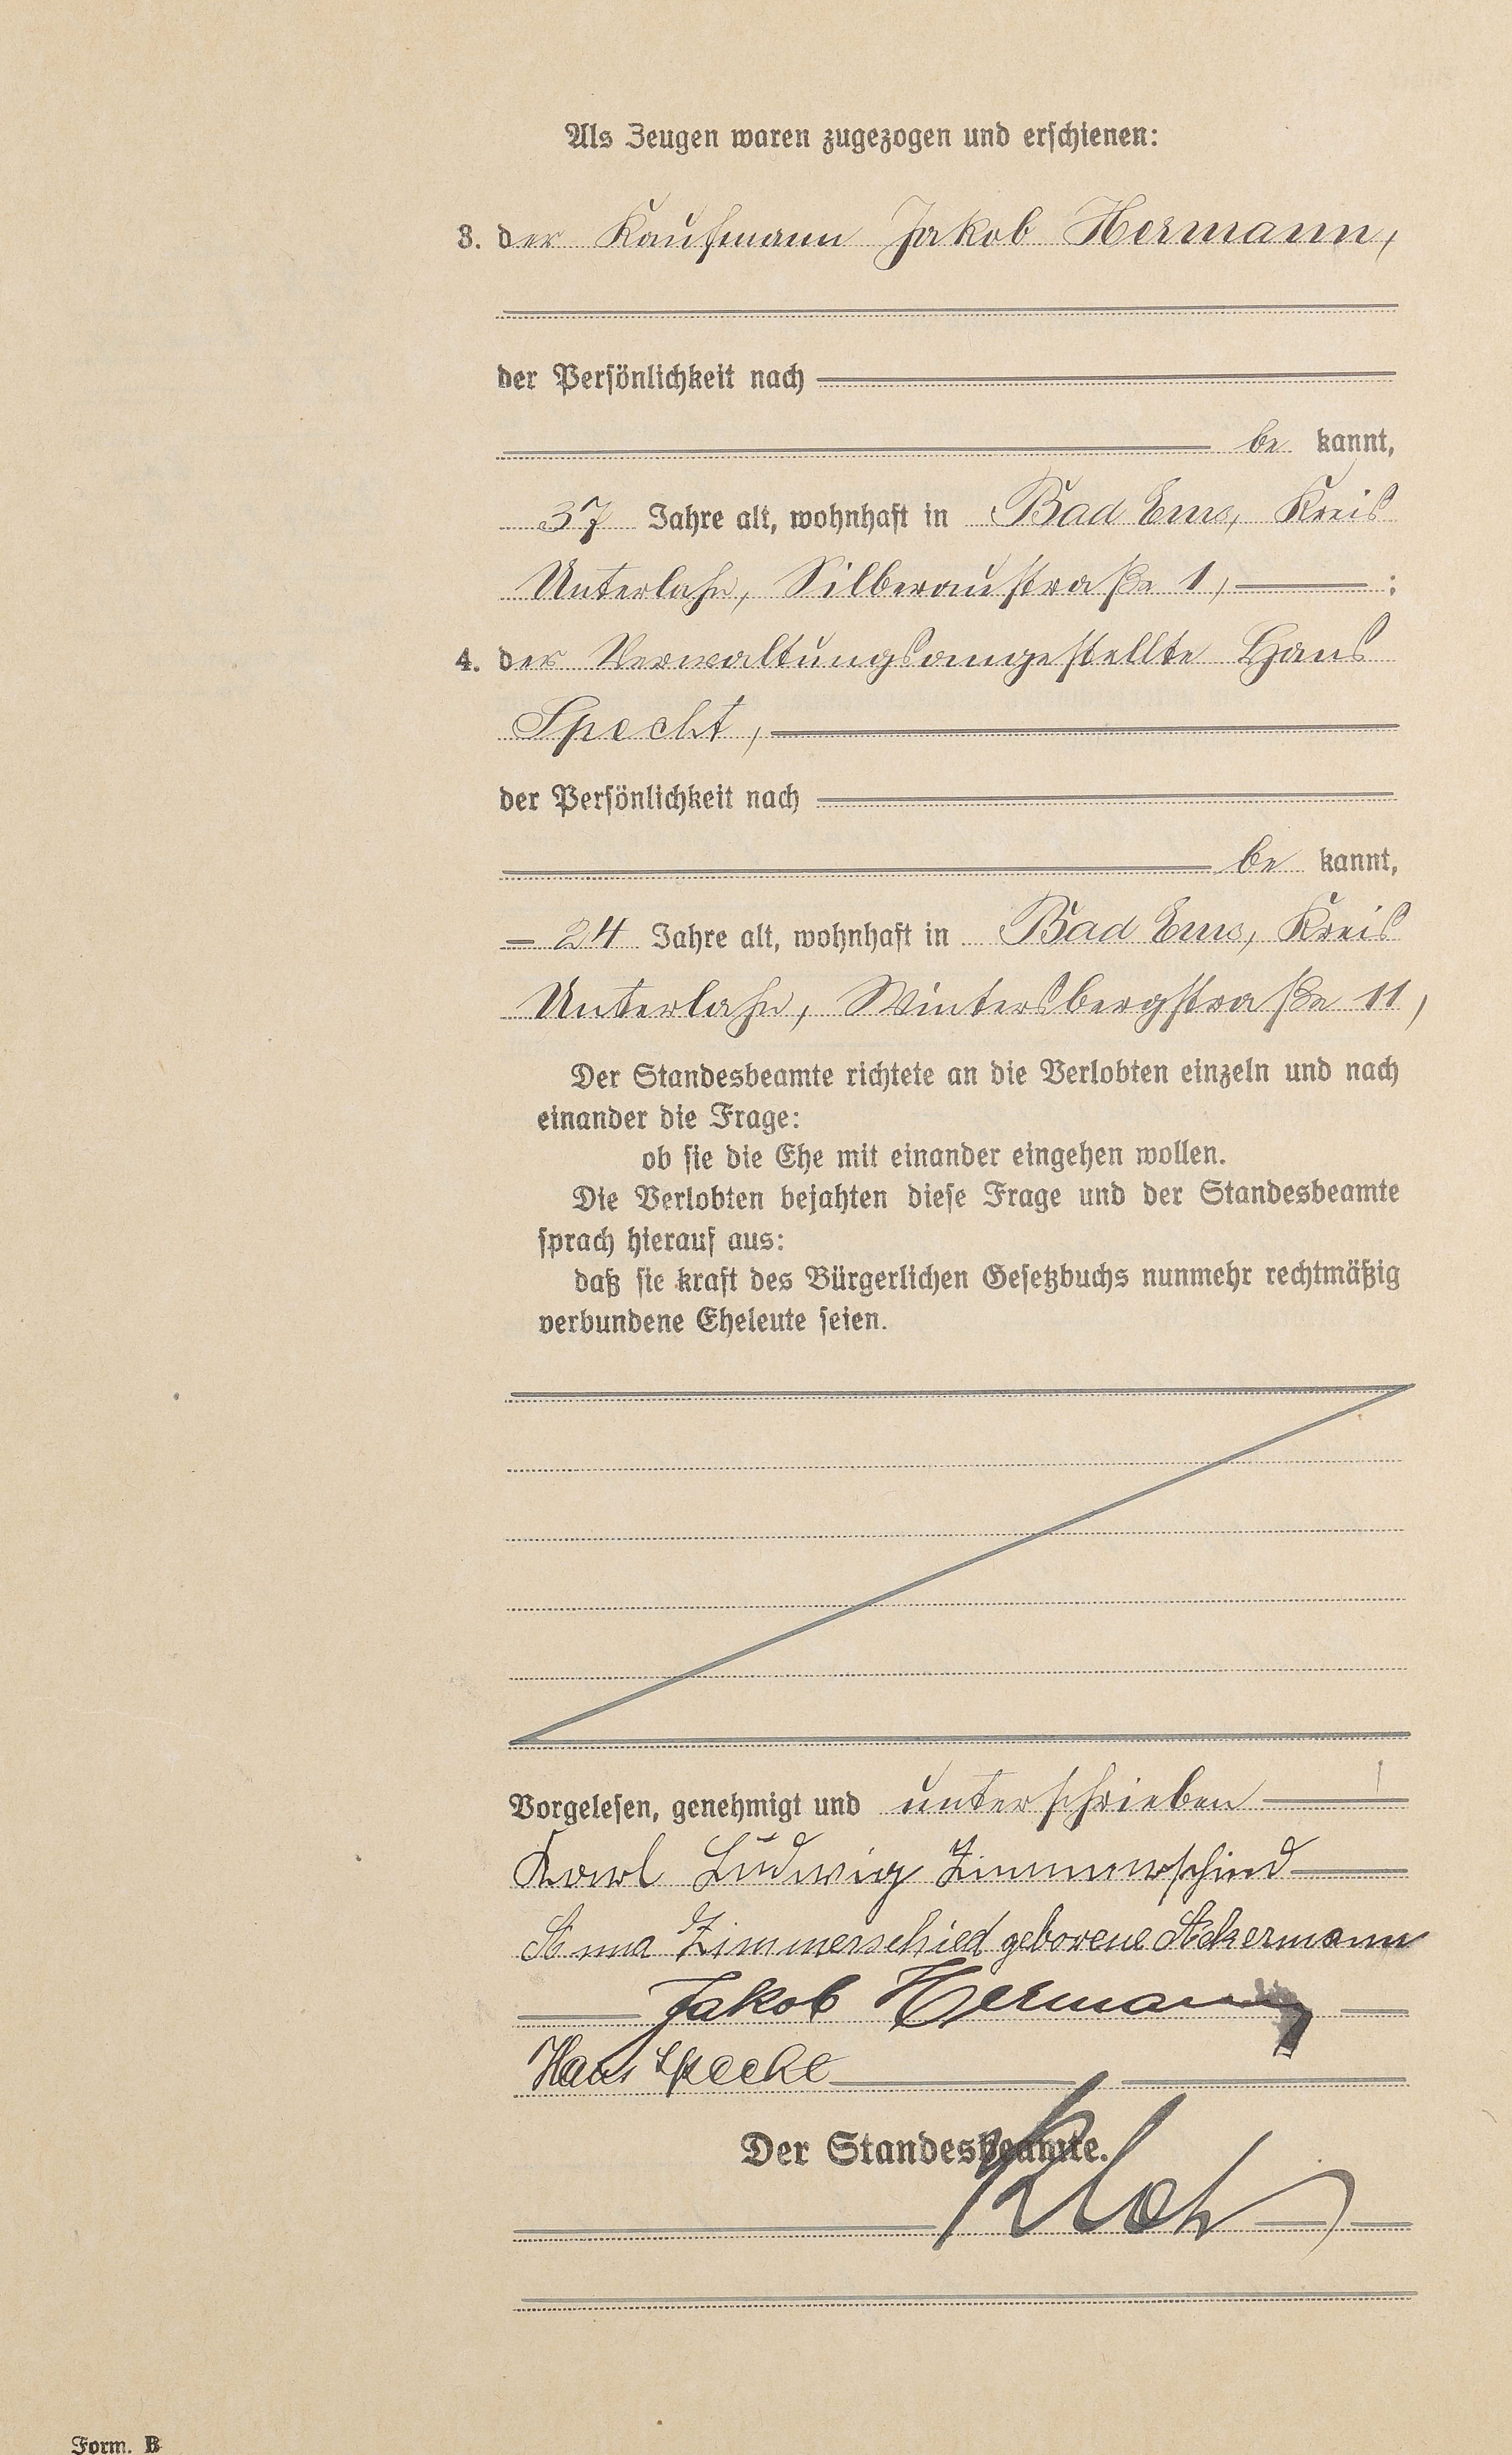 Als Zeugen waren zugezogen und erschienen:
3. der Kaufmann Jakob Hermann,
der Persönlichkeit nach
be kannt,
37 Jahre alt, wohnhaft in Bad Ems, Kreis
Unterlahn, Silberaustraße 1, ;
4. der Verwaltungsangestellte Hans
Specht,
der Persönlichkeit nach
be kannt,
24 Jahre alt, wohnhaft in Bad Ems, Kreis
Unterlahn, Wintersbergstraße 11,
Der Standesbeamte richtete an die Verlobten einzeln und nach
einander die Frage:
ob sie die Ehe mit einander eingehen wollen.
Die Verlobten bejahten diese Frage und der Standesbeamte
sprach hierauf aus:
daß sie kraft des Bürgerlichen Gesetzbuchs nunmehr rechtmäßig
verbundene Eheleute seien.
Vorgelesen, genehmigt und unterschrieben
Karl Ludwig Zimmerschied
Anna Zimmerschied geborene Ackermann
Jakob Hermann
Hans Specht
Der Standesbeamte.
Form. B